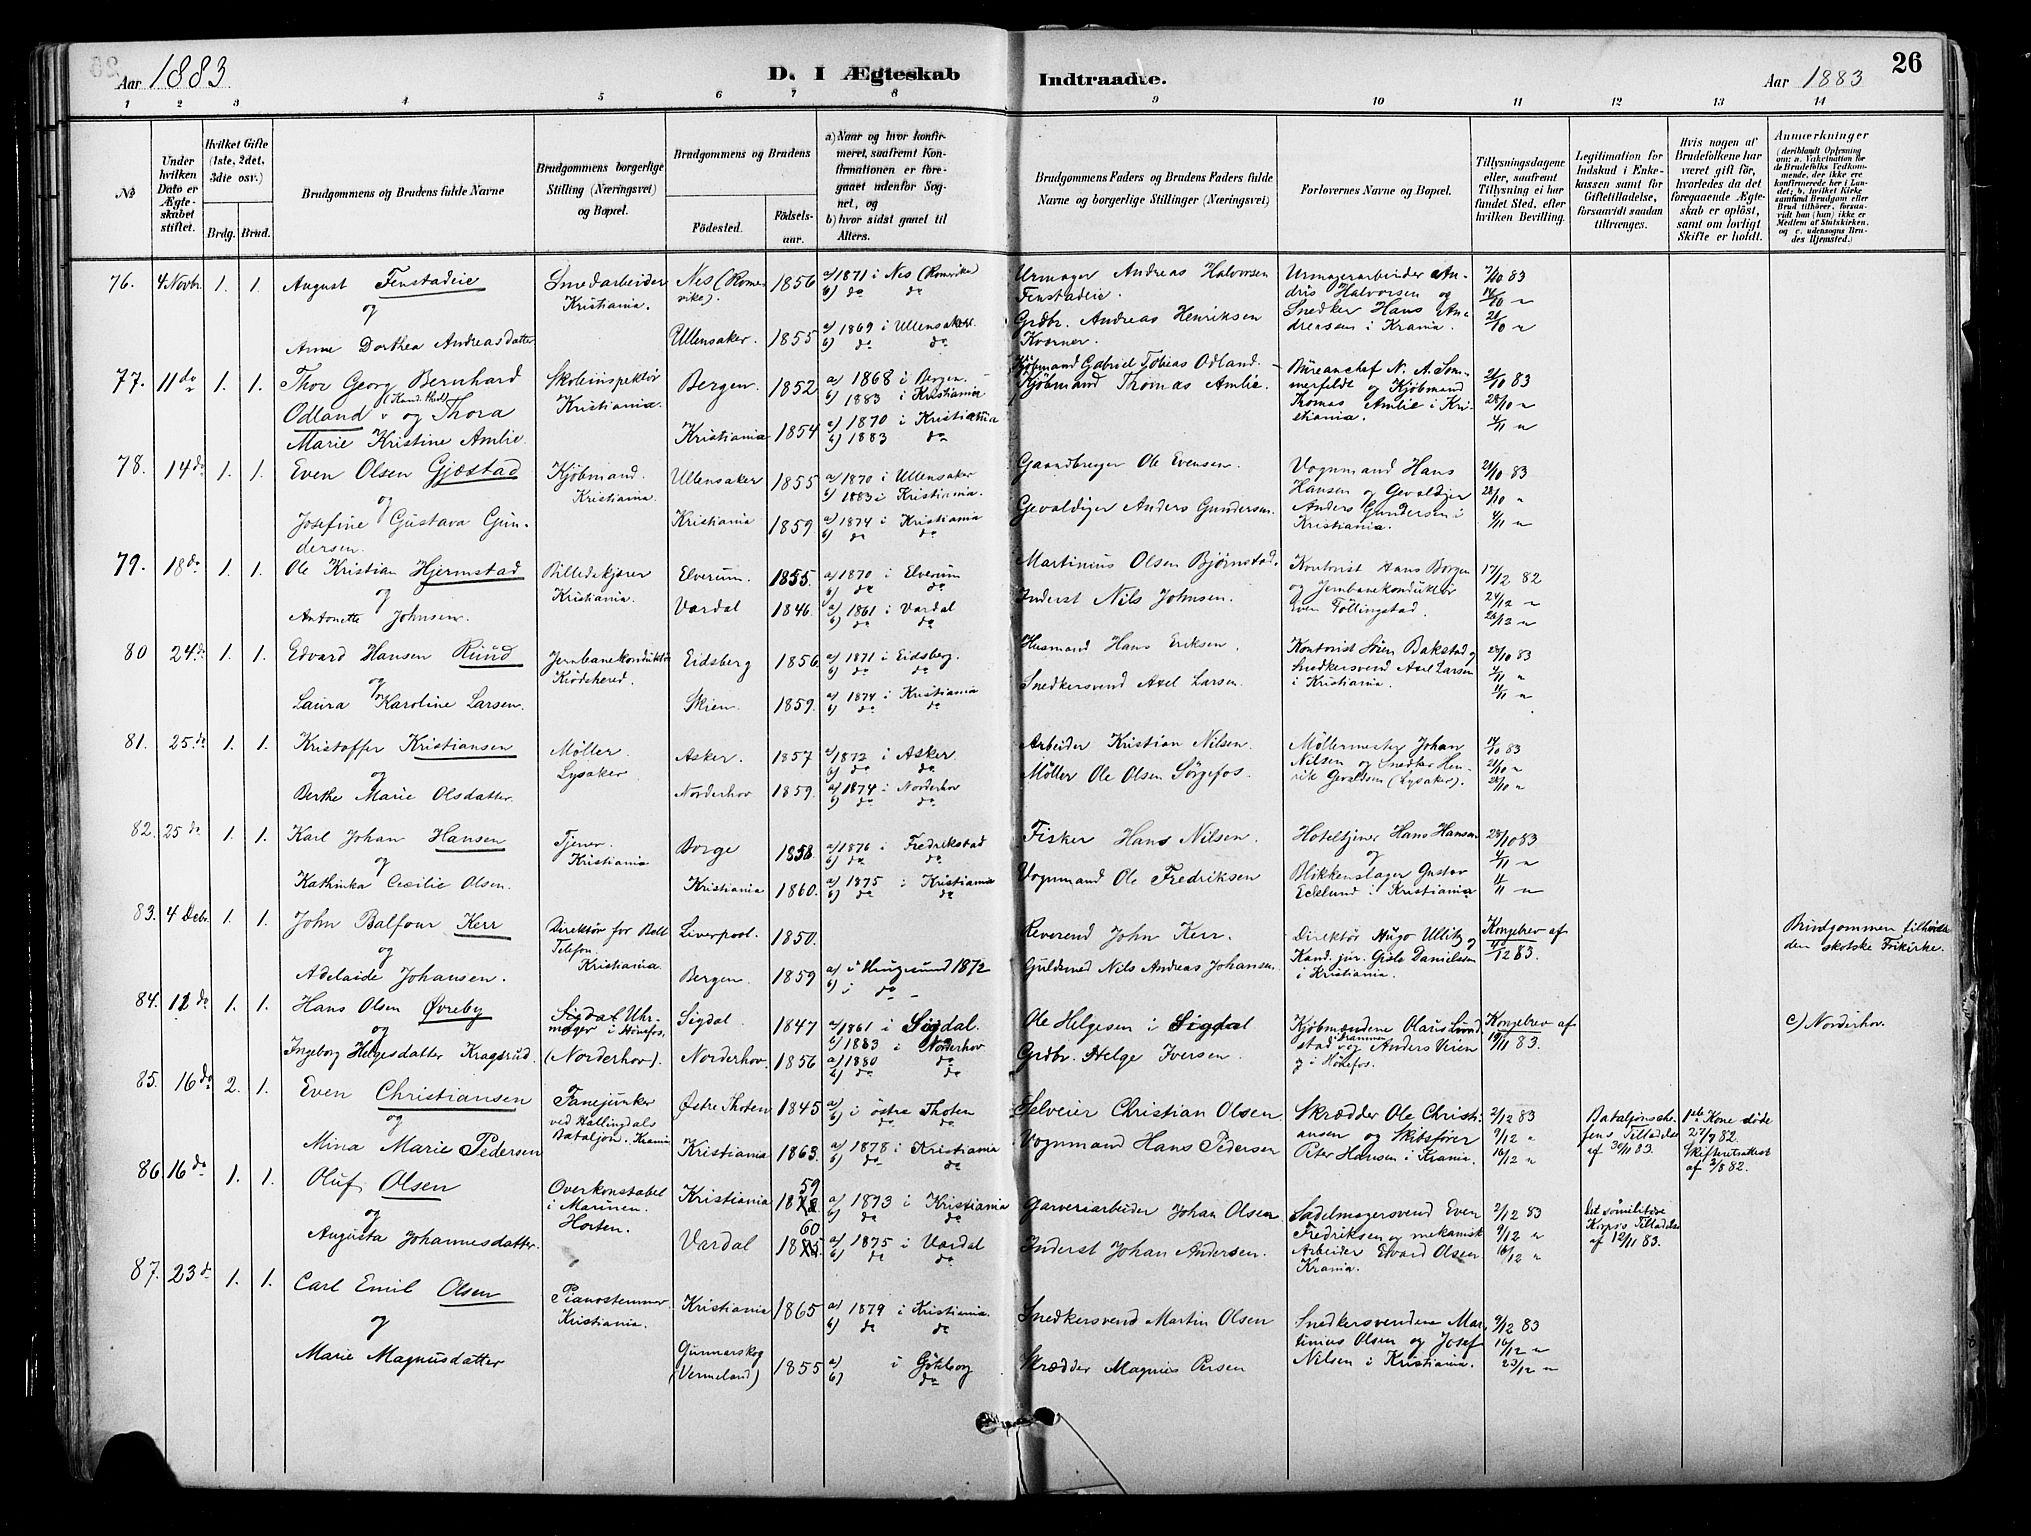 Aar 1883.
D. I Ægteskab Indtraadte.
Aar 1883
26
1 2 3 4 5 6 7 8 9 10 11 12 13 14
No
Under hvilken Dato er Ægteskabet stiftet.
Hvilket Gifte (1ste, 2det, 3die osv.)
Brdg. Brud.
Brudgommens og Brudens fulde Navne
Brudgommens borgerlige Stilling (Næringsvei) og Bopæl.
Brudgommens og Brudens
Födested.
Födselsaar.
a) Naar og hvor konfirmeret, saafremt Konfirmationen er foregaaet udenfor Sognet, og
b) hvor sidst ganet til Alters.
Brudgommens Faders og Brudens Faders fulde Navne og borgerlige Stillinger (Næringsvei)
Forlovernes Navne og Bopæl.
Tillysningsdagene eller, saafremt Tillysning ei har fundet Sted, efter hvilken Bevilling.
Legitimation for Indskud i Enkekassen samt for Giftetilladelse, forsaavidt saadan tiltrænges.
Hvis nogen af Brudefolkene har været gift för, hvorledes da det foregaaende Ægteskab er oplöst, samt om lovligt Skifte er holdt.
Anmærkninger (deriblandt Oplysning om: a. Vakcination for de Brudefolks Vedkommende, der ikke ere konfirmerede her i Landet; b. hvilket Kirkesamfund Brudgom eller Brud tilhörer, forsaavidt han (hun) ikke er Medlem af Statskirken, og c. udensogns Brudes Hjemsted.)
76. 4 Novbr. 1. 1. August Fenstadeie
og
Anne Dorthea Andreasdatter
Smedarbeider
Kristiania.
Nes (Romerike). 1856 a) 1871 i Nes (Romerike)
b) do do
Ullensaker. 1855 a) 1869 i Ullensaker
b) do do
Urmager Andreas Halvorsen
Fenstadeie.
Grdbr. Andreas Henriksen
Kværner.
Urmagerarbeider Andris Halvorsen og
Snedker Hans Andreassen i Krania.
7/10 83
14/10 "
21/10 "
77. 11 do 1. 1. Thor Georg Bernhard
(Kand. theol)
Odland og Thora
Marie Kristine Amlie.
Skoleinspektør
Kristiania.
Bergen. 1852 a) 1868 i Bergen.
b) 1883 i Kristiania
Kristiania 1854 a) 1870 i Kristiania
b) 1883 do
Kjøbmand Gabriel Tobias Odland.
Kjøbmand Thomas Amlie.
Bureauchef N. A. Sommerfeldt og Kjøbmand
Thomas Amlie i Kristiania.
21/10 83
28/10 "
4/11 "
78. 14 do 1. 1. Even Olsen Gjæstad
og
Josefine Gustava Gundersen.
Kjøbmand.
Kristiania.
Ullensaker 1855 a) 1870 i Ullensaker
b) 1883 i Kristiania.
Kristiania 1859 a) 1874 i Kristiania
b) do do
Gaardbruger Ole Evensen.
Gevaldiger Anders Gundersen.
Vognmand Hans
Hansen og Gevaldiger
Anders Gundersen i
Kristiania.
21/10 83
28/10 "
4/11 "
79. 18 do 1. 1. Ole Kristian Hjermstad
og
Antonette Johnsen.
Billedskjærer
Kristiania.
Elverum. 1855. a) 1870 i Elverum
b) do do
Vardal 1846. a) 1861 i Vardal
b) do do
Martinius Olsen Bjørnstad.
Inderst Nils Johnsen.
Kontorist Hans Borgen
og Jernbanekonduktør
Even Töllingstad.
17/12 82
24/12 "
26/12 "
80 24 do 1. 1. Edvard Hansen Ruud
og
Laura Karoline Larsen.
Jernbanekonduktør
Krödshered.
Eidsberg 1856. a) 1871 i Eidsberg.
b) do do
Skien. 1859. a) 1874 i Kristiania
b) do do
Husmand Hans Eriksen.
Snedkersvend Axel Larsen.
Kontorist Sören Bakstad og
Snedkersvend Axel Larsen
i Kristiania.
28/10 83
4/11 "
11/11 "
81. 25. do 1. 1. Kristoffer Kristiansen
og
Berthe Marie Olsdatter.
Møller.
Lysaker.
Asker. 1857 a) 1872 i Asker.
b) do do
Norderhov 1859. a) 1874 i Norderhov
b) do do
Arbeider Kristian Nilsen.
Møller Ole Olsen Sørgefos.
Møllermester Johan
Nilsen og Snedker Henrik Gevaldsen (Lysaker).
14/10 83
21/10 "
28/10 "
82. 25 do 1. 1. Karl Johan Hansen
og
Kathinka Cæcilie Olsen.
Tjener.
Kristiania
Borge 1858. a) 1876 i Fredrikstad
b) do do
Kristiania 1860. a) 1875 i Kristiania
b) do do
Fisker Hans Nilsen.
Vognmand Ole Fredriksen
Hoteltjener Hans Hansen
og
Blikkenslager Gustav
Edslund i Kristiania
28/10 83
4/11 "
11/11 "
83. 4 Decbr. 1. 1. John Balfour Kerr
og
Adelaide Johansen.
Direktør for Bell
Telefon
Kristiania.
Liverpool. 1850.
Bergen. 1859 a) i Haugesund 1872
b) i do
Reverend John Kerr.
Guldsmed Nils Andreas Johansen.
Direktør Hugo Ullitz og
Kand. jur. Gisle Danielsen
i Kristiania.
Kongebrev af
/12 83.
Brudgommen tilhörer
den skotske Frikirke.
84. 12 do 1. 1. Hans Olsen Øvreby
og
Ingeborg Helgesdatter Kragsrud.
Sigdal Uhrmager i Hönefos.
(Norderhov).
Sigdal. 1847 a) 1861 i Sigdal.
b) 1883 i Norderhov
Norderhov. 1856 a) 1880 do
b) do do
Ole Helgesen i Sigdal
Grdbr. Helge Iversen.
Kjøbmændene Olaus Lundstad Drammen og Anders Veien
i Hönefos.
Kongebrev af
19/11 83.
c) Norderhov.
85. 16 do 2. 1. Even Christiansen
og
Mina Marie Pedersen
Fanejunker
ved Hallingdals
Bataljon. Krania
Østre Thoten 1845 a)
b) i östre Thoten
Kristiania 1863. a) 1878 i Kristiania
b) do do
Selveier Christian Olsen
Vognmand Hans Pedersen
Skrædder Ole Christiansen og Skibsfører
Peter Hansen i Krania.
2/12 83
9/12 "
16/12 "
Bataljonschefens Tilladelse
af 30/11 83.
1ste Kone døde
27/7 82.
Skifteretsattest
af 3/8 82.
86. 16 do 1. 1. Oluf Olsen
og
Augusta Johannesdatter.
Overkonstabel
i Marinen.
Horten.
Kristiania 1859 a) 1873 i Kristiania
b) do do
Vardal 1860 a) 1875 i Vardal
b) do do
Garveriarbeider Johan Olsen
Inderst Johan Andersen.
Sadelmagersvend Even
Fredriksen og mekanisk
Arbeider Edvard Olsen
Krania.
2/12 83
9/12 "
16/12 "
Det sömilitære
Korps's Tilladelse
af 12/11 83.
87. 23 do 1. 1. Carl Emil Olsen
og
Marie Magnusdatter
Pianostemmer
Kristiania.
Kristiania 1865 a) 1879 i Kristiania.
b) do do
Gunnarskog
(Vermeland) 1855 a) i Göteborg
b) do
Snedkersvend Martin Olsen
Skrædder Magnus Persen
Snedkersvendene Martinius Olsen og Josef
Nilsen i Kristiania.
9/12 83
16/12 "
23/12 "